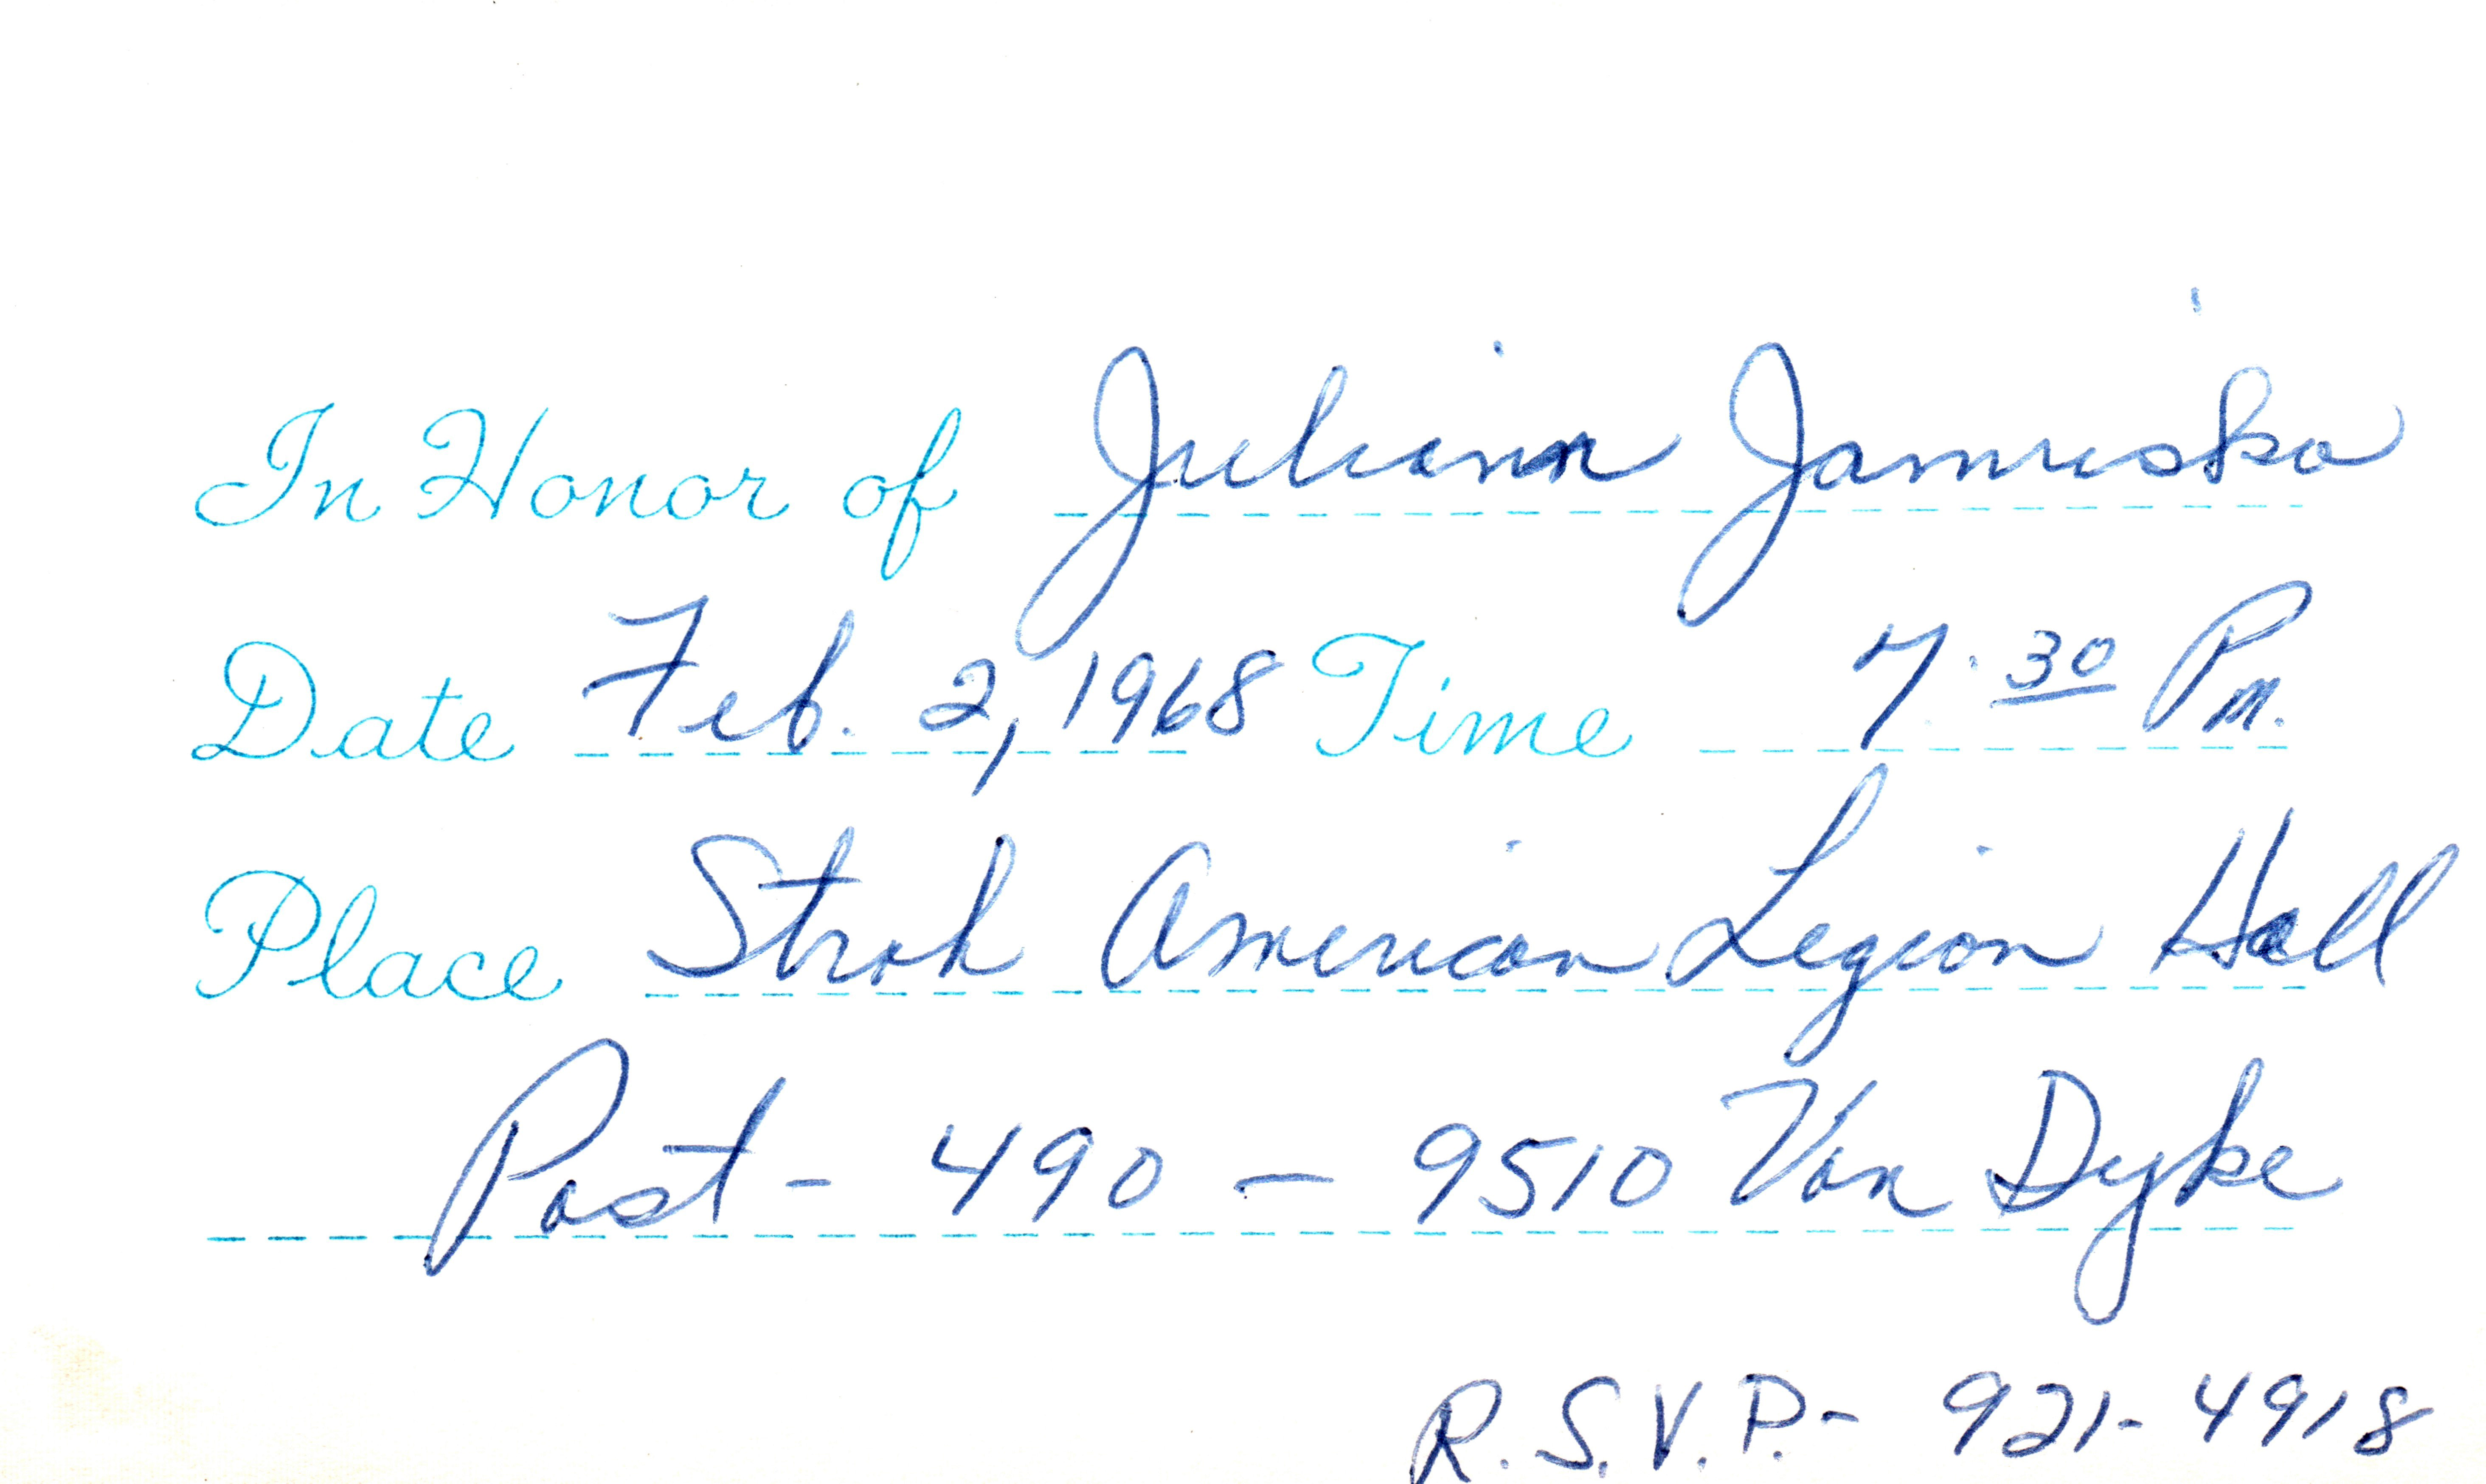 In Honor of Juliann Jamiska
Date Feb. 2, 1968 Time 7:30 Pm.
Place Stroh American Legion Hall
Post - 490 — 9510 Van Dyke
R.S.V.P. - 921-4918